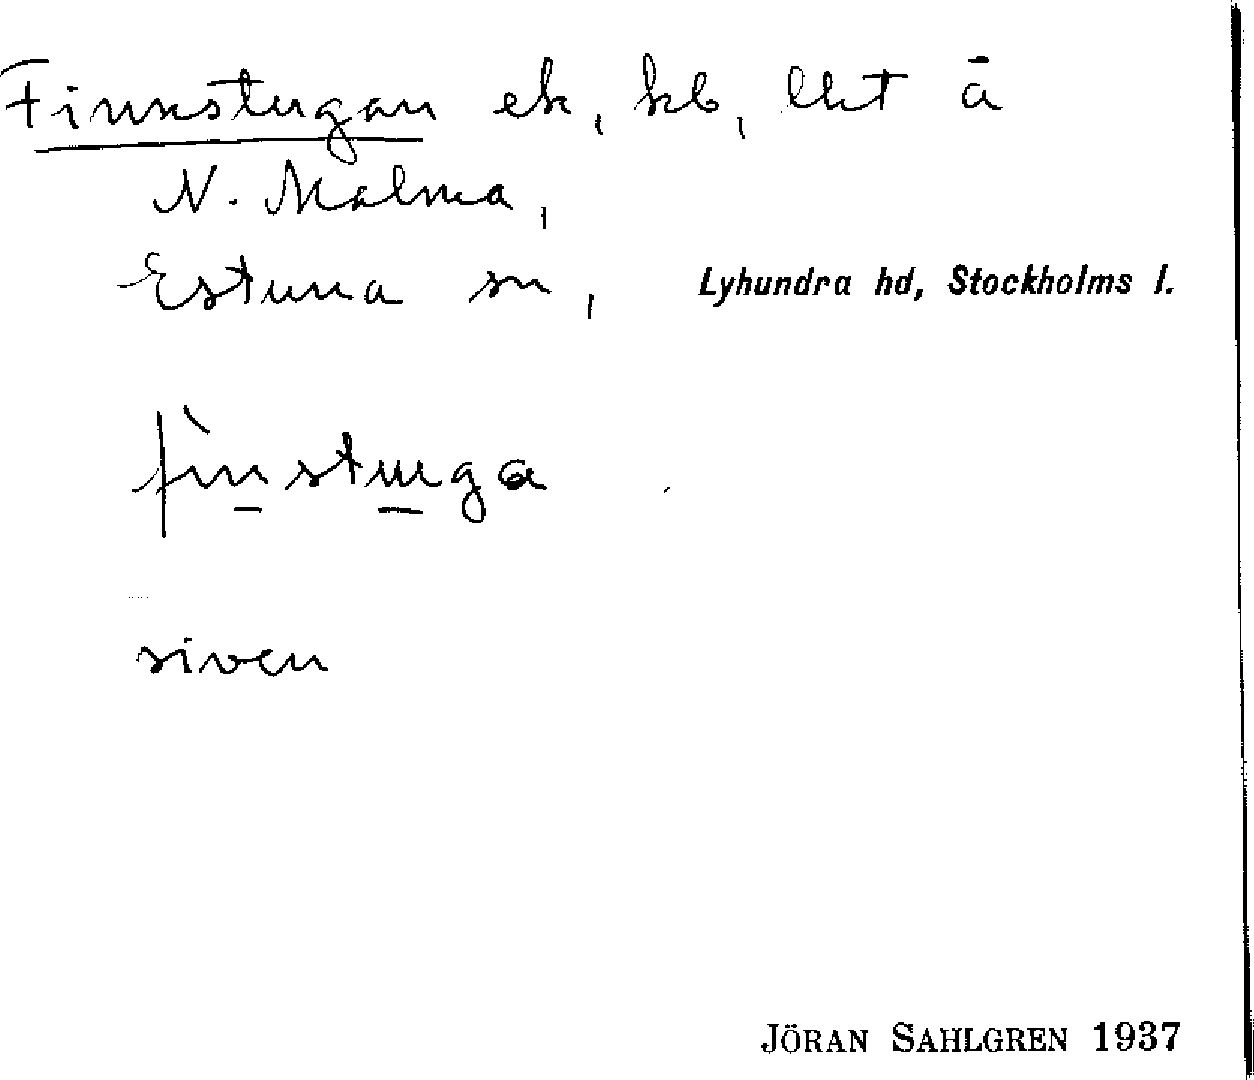 Finnstugan ek, kb, lht å
N. Malma,
Estuna sn, Lyhundra hd, Stockholms l.
fìnstuga
riven
JÖRAN SAHLGREN 1937